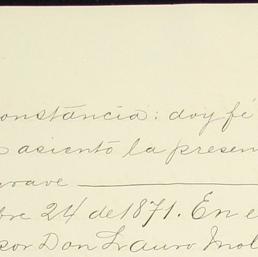 onstancia: doy fé
asiento la presen
grave
bre 24 de 1871. En e
Don Lauro Mol